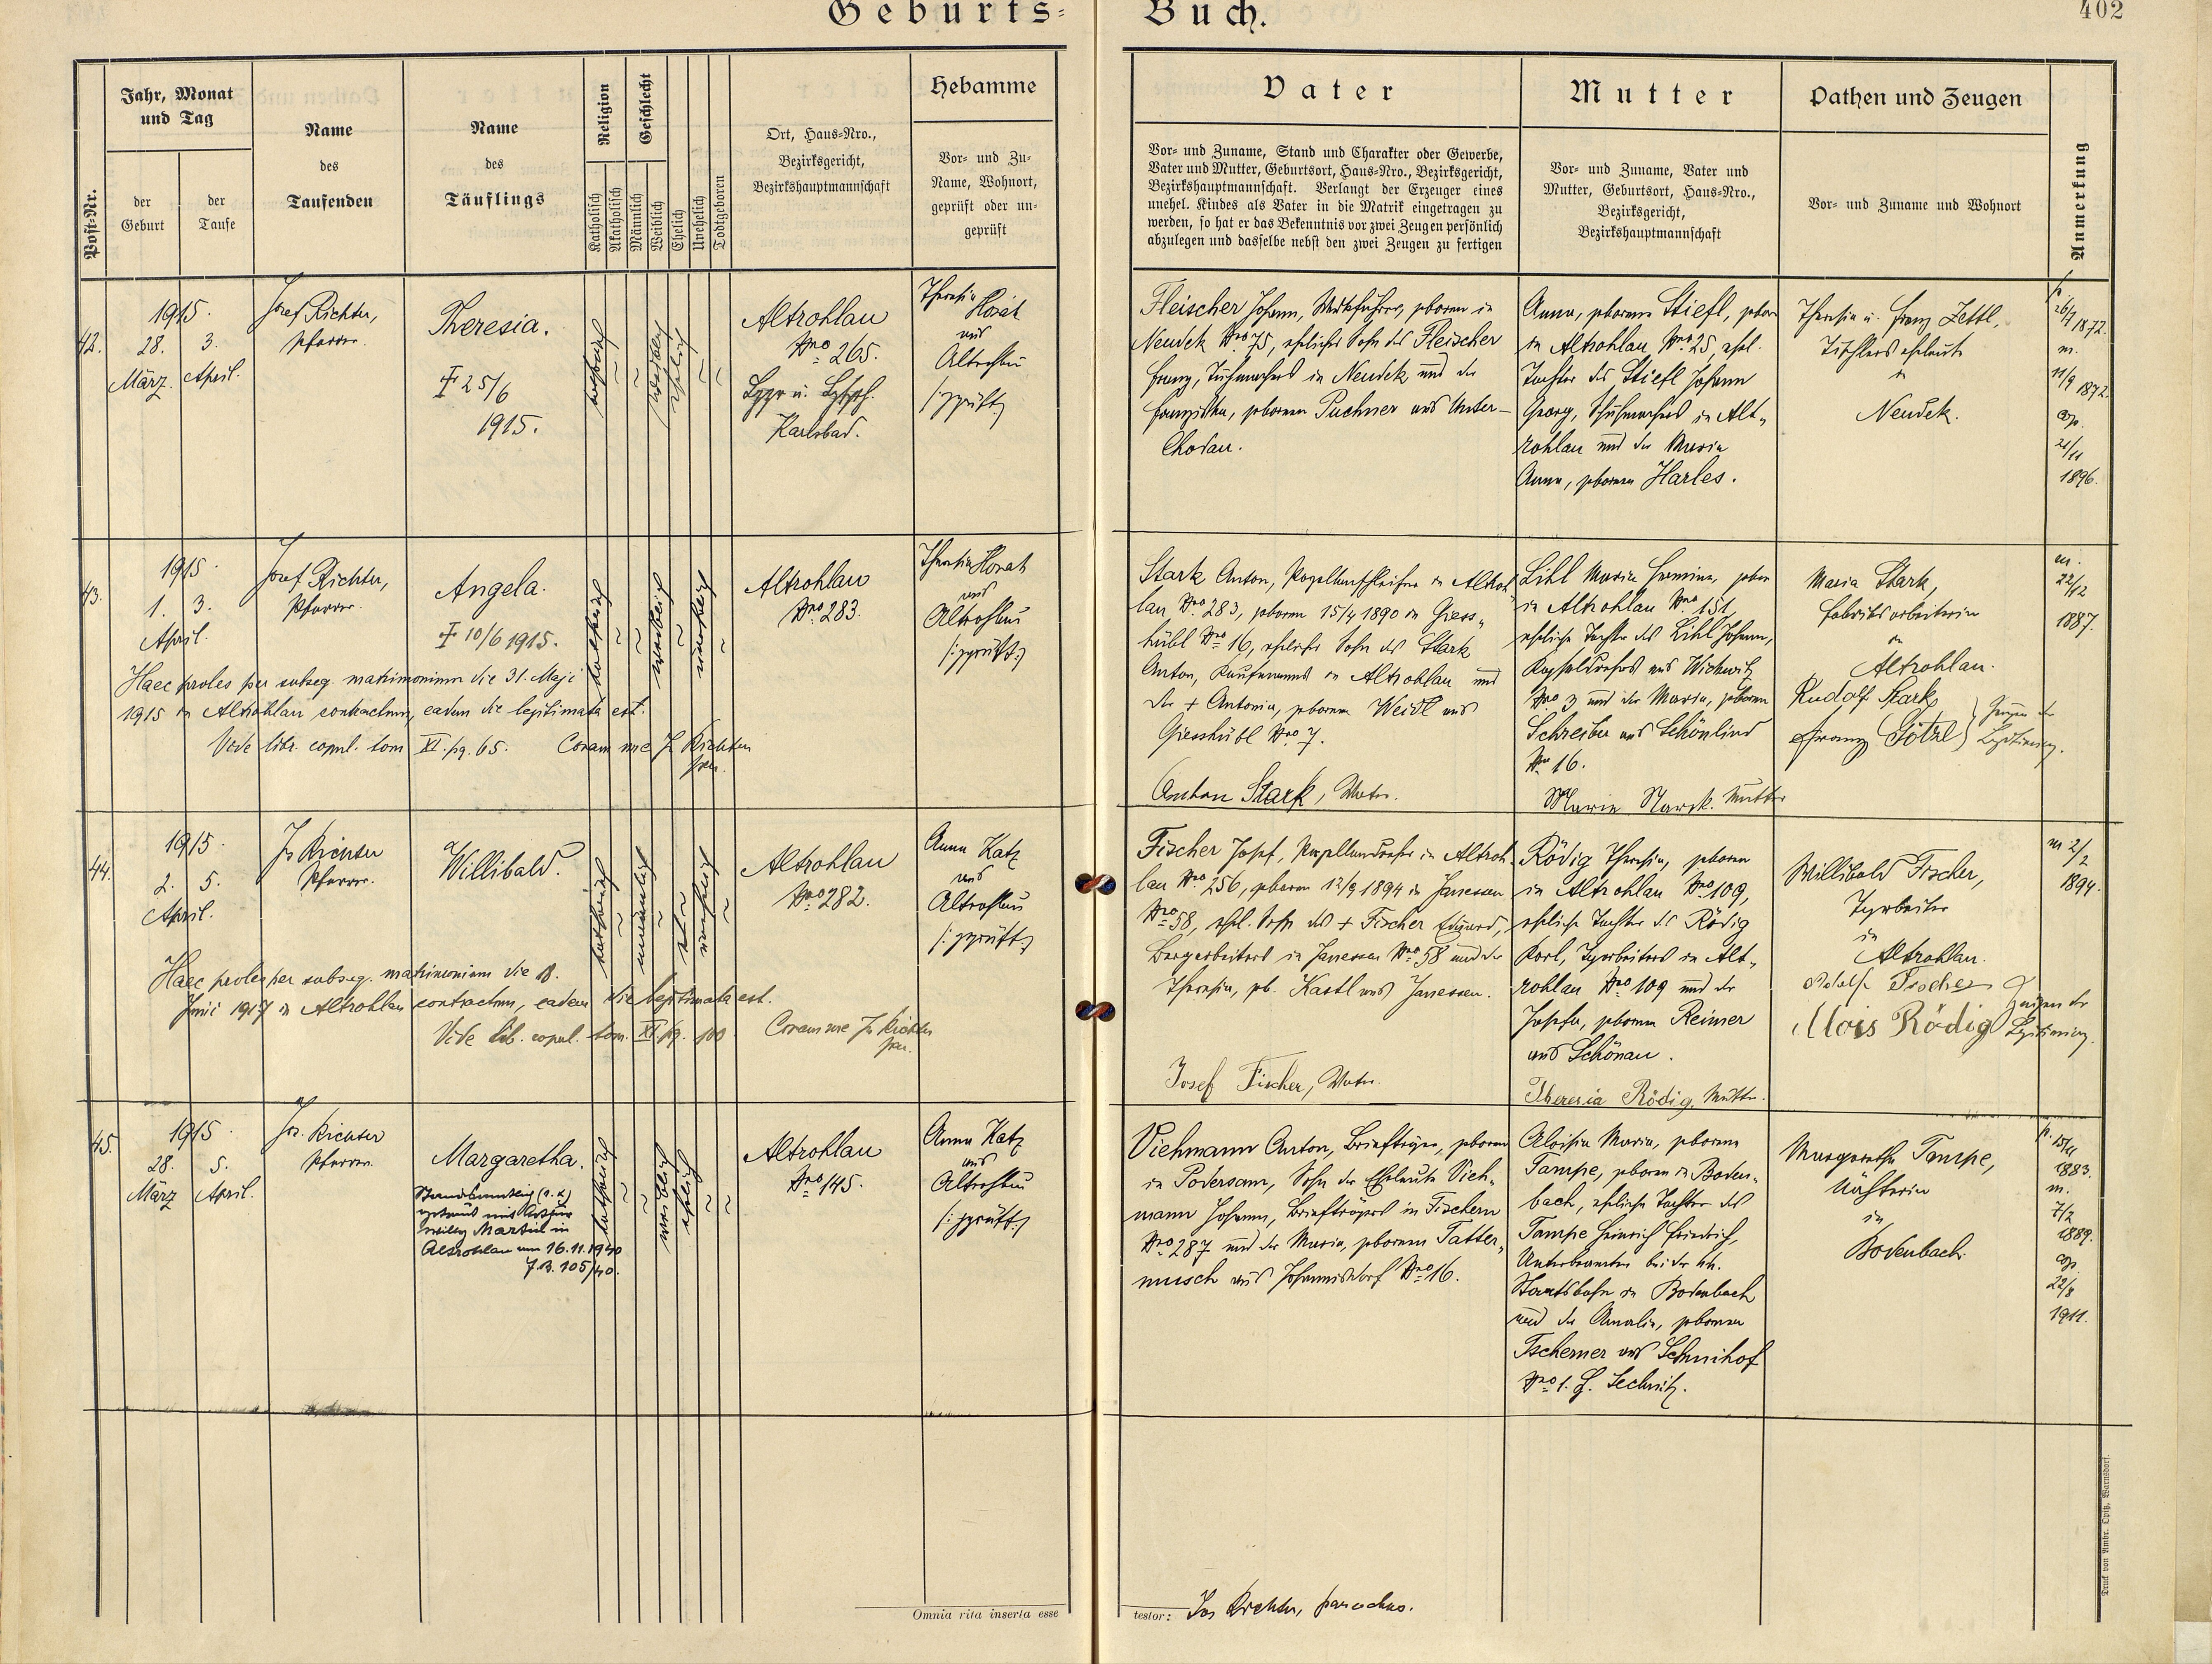 Geburts= Buch.
402
Post-Nr.
Jahr, Monat
und Tag
der
Geburt
der
Taufe
Name
des
Taufenden
Name
des
Täuflings
Religion
Katholisch
Akatholisch
Geschlecht
Männlich
Weiblich
Ehelich
Unehelich
Todtgeboren
Ort, Haus=Nro.,
Bezirksgericht,
Bezirkshauptmannschaft
Hebamme
Vor= und Zu=
Name, Wohnort,
geprüft oder un=
geprüft
Vater
Vor= und Zuname, Stand und Charakter oder Gewerbe,
Vater und Mutter, Geburtsort, Haus=Nro., Bezirksgericht,
Bezirkshauptmannschaft. Verlangt der Erzeuger eines
unehel. Kindes als Vater in die Matrik eingetragen zu
werden, so hat er das Bekenntnis vor zwei Zeugen persönlich
abzulegen und dasselbe nebst den zwei Zeugen zu fertigen
Mutter
Vor= und Zuname, Vater und
Mutter, Geburtsort, Haus=Nro.,
Bezirksgericht,
Bezirkshauptmannschaft
Pathen und Zeugen
Vor= und Zuname und Wohnort
Anmerkung
42.
1915.
28. 3.
März. April.
Josef Richter,
Pfarrer.
Theresia.
25/6
1915.
katholisch
weiblich
ehelich
Altrohlau
Nro 265.
Karlsbad.
Theresia Horat
aus
Altrohlau
geprüft
Fleischer Johann, Werkführer, geboren in
Neudek Nro 75, ehelicher Sohn des Fleischer
Franz, Tuchmachers in Neudek und der
Franziska, geborenen Puchner aus Unter-
Chodau.
Anna, geborene Stiefl, geboren
in Altrohlau Nro 25, ehel.
Tochter des Stiefl Johann
Georg, Schuhmachers in Alt-
rohlau und der Maria
Anna, geborenen Harles.
Theresia u. Franz Zettl,
Tischlerseheleute
in
Neudek.
26/7 1872.
m.
11/9 1872.
cop.
21/11
1896.
43.
1915.
1. 3.
April.
Josef Richter,
Pfarrer.
Angela.
10/6 1915.
katholisch
weiblich
unehelich
Altrohlau
Nro 283.
Theresia Horat
aus
Altrohlau
/:geprüft:/
Haec proles per subseq. matrimonium die 31. Maji
1915 in Altrohlau contractum, eadem die legitimata est.
Vide libr. copul. tom XI. pg. 65. Coram me J. Richter
par.
Stark Anton, Porzellanschleifer in Altroh-
lau Nro 283, geboren 15/4 1890 in Giess-
hübl Nro 16, ehelicher Sohn des Stark
Anton, Kaufmanns in Altrohlau und
der + Antonia, geborenen Weidl aus
Giesshübl Nro 7.
Anton Stark, Vater.
Lihl Maria Hermine, geboren
in Altrohlau Nro 151,
eheliche Tochter des Lihl Johann,
Kapseldrehers aus Wickwitz
Nro 3 und der Maria, geborenen
Schreiber aus Schönlind
Nro 16.
Marie Starck. Mutter
Maria Stark,
Fabriksarbeiterin
in
Altrohlau.
Rudolf Stark
Franz Götzl
Zeugen der
Legitimierung.
m.
22/12
1887.
44.
1915.
2. 5.
April.
Js Richter
Pfarrer.
Willibald.
katholisch
männlich
unehelich
Altrohlau
Nro 282.
Anna Katz
aus
Altrohlau
/:geprüft:/
Haec proles per subseq. matrimonium die 18.
Junii 1917 in Altrohlau contractum, eadem die legitimata est.
Vide lib. copul. tom. XI. pg. 100. Coram me Js Richter
par.
Fischer Josef, Porzellandreher in Altroh-
lau Nro 256, geboren 12/9 1894 in Janessen
Nro 58, ehel. Sohn des + Fischer Eduard,
Bergarbeiters in Janessen Nro 58 und der
Theresia, geb. Kastl aus Janessen.
Josef Fischer, Vater.
Rödig Theresia, geboren
in Altrohlau Nro 109,
eheliche Tochter des Rödig
Karl, Tagarbeiters in Alt-
rohlau Nro 109 und der
Josefa, geborenen Reimer
aus Schönau.
Theresia Rödig, Mutter.
Willibald Fischer,
in
Altrohlau.
Adolf Fischer
Alois Rödig
Zeugen der
Legitimierung.
m 2/2
1894.
45.
1915.
28. 5.
März April.
Jos. Richter
Pfarrer.
Margaretha.
Willy Martin in
Altrohlau am 16.11.1940
105/40.
katholisch
weiblich
ehelich
Altrohlau
Nro 145.
Anna Katz
aus
Altrohlau
/:geprüft:/
Viehmann Anton, Briefträger, geboren
in Podersam, Sohn der Eheleute Vieh-
mann Johann, Briefträgers in Fischern
Nro 287 und der Maria, geborenen Tatter-
musch aus Johannisdorf Nro 16.
Aloisia Maria, geborene
Tampe, geboren in Boden-
bach, eheliche Tochter des
Tampe Heinrich Friedrich,
Unterbeamten bei der kk.
Staatsbahn in Bodenbach
und der Amalia, geborenen
Tscherner aus Lechnihof
Nro 1. G. Lechnitz.
Margaretha Tampe,
Nähterin
in
Bodenbach.
1883.
m.
7/2
1889.
cop.
22/8
1911.
Omnia rita inserta esse
testor: Jos Richter, parochus.
Druck von Ambr. Opitz, Warnsdorf.